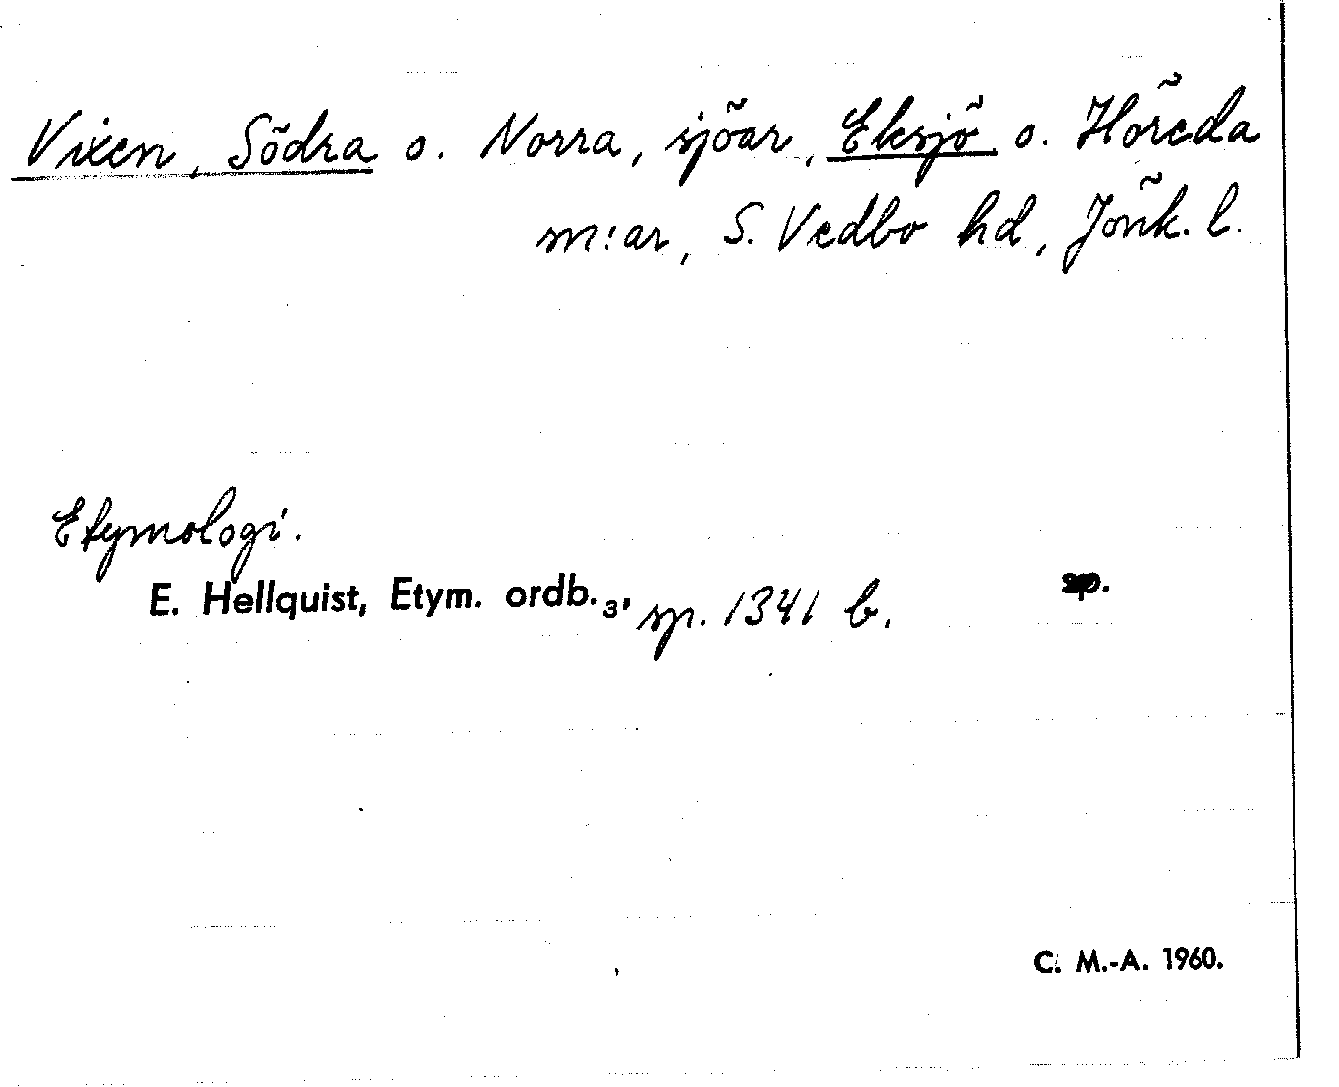 Vixen, Södra o. Norra, sjöar, Eksjö o. Höreda
m:ar, S. Vedbo hd, Jönk. l.
Etymologi.
E. Hellquist, Etym. ordb.₃, sp. 1341 b. sp.
C. M.-A. 1960.